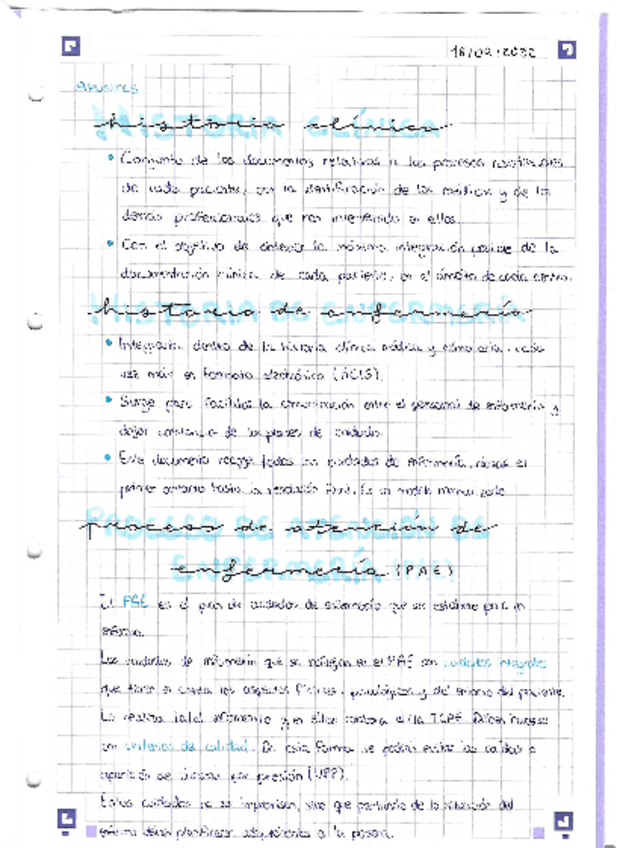 18/09/2022
APUNTES
historia clínica
Conjunto de los documentos relativos a los procesos asistenciales
de cada paciente, con la identificación de los médicos y de los
demás profesionales que han intervenido en ellos.
Con el objetivo de obtener la máxima integración posible de la
documentación clínica de cada paciente, en el ámbito de cada centro.
historia de enfermería
Integrada dentro de la historia clínica médica y cada
vez más en formato electrónico
Surge para facilitar la comunicación entre el personal de enfermería y
dejar constancia de los planes de cuidado.
Este documento recoge todos los cuidados de enfermería, desde el
primer contacto hasta la resolución final. Es un
proceso de atención de
enfermería (PAE)
El PAE es el plan de cuidados de enfermería que se establece para un
enfermo.
Los cuidados de enfermería que se reflejan en el PAE son cuidados integrales
que tienen en cuenta los aspectos físicos, psicológicos y del entorno del paciente.
Lo realiza el/la enfermero y en ellos colabora el/la TCAE. Deben hacerse
con criterios de calidad. De esta forma se podrán evitar las caídas o
aparición de úlceras por presión (UPP).
Estos cuidados no se improvisan, sino que partiendo de la situación del
enfermo deben planificarse a la persona.